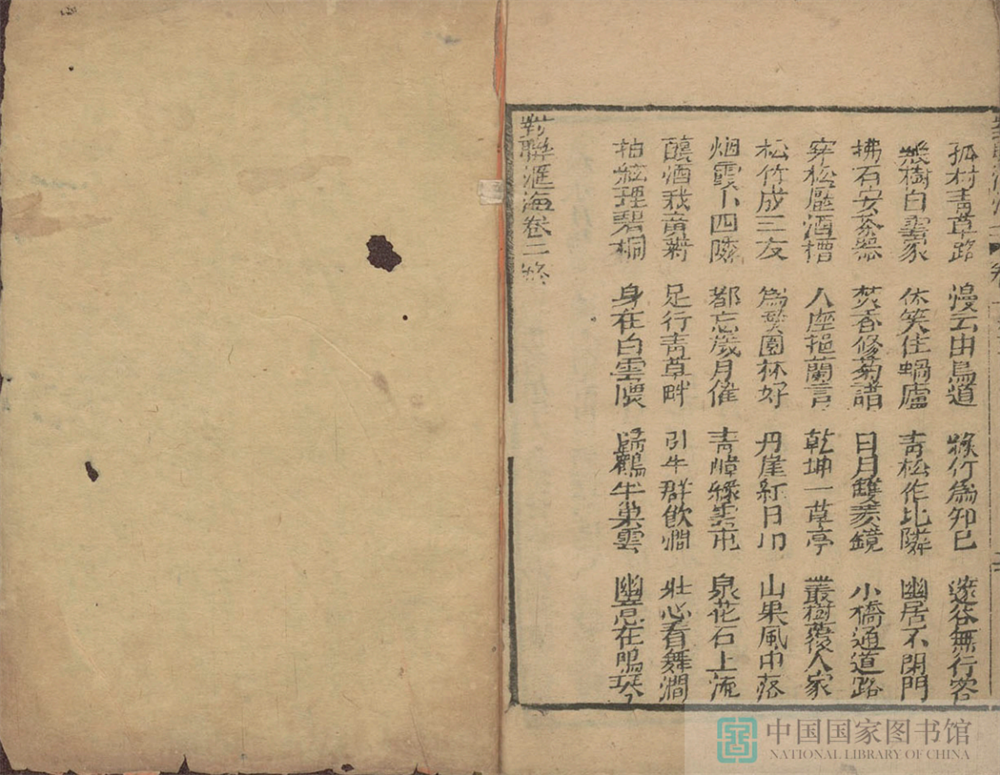 孤村青草路 漫云由鳥道 為知已 無行客
樹白雲家 休笑住蝸廬 青松作比隣 幽居不閉門
拂石安茶器 焚香修菊譜 日月雙天鏡 小橋通道路
穿松壓酒槽 人座挹蘭言 乾坤一草亭 叢樹覆人家
松竹成三友 為園林好 丹崖紅日 山果風中落
烟霞卜四隣 都忘歲月催 青幃綠雲屯 泉花石上流
釀酒我黃菊 足行青草畔 引牛群飲澗 壯心看舞澗
拍絃理碧桐 身在白雲隈 歸鶴半巢雲 幽意在鳴琴
對聯滙海卷二終
中国国家图书馆
NATIONAL LIBRARY OF CHINA